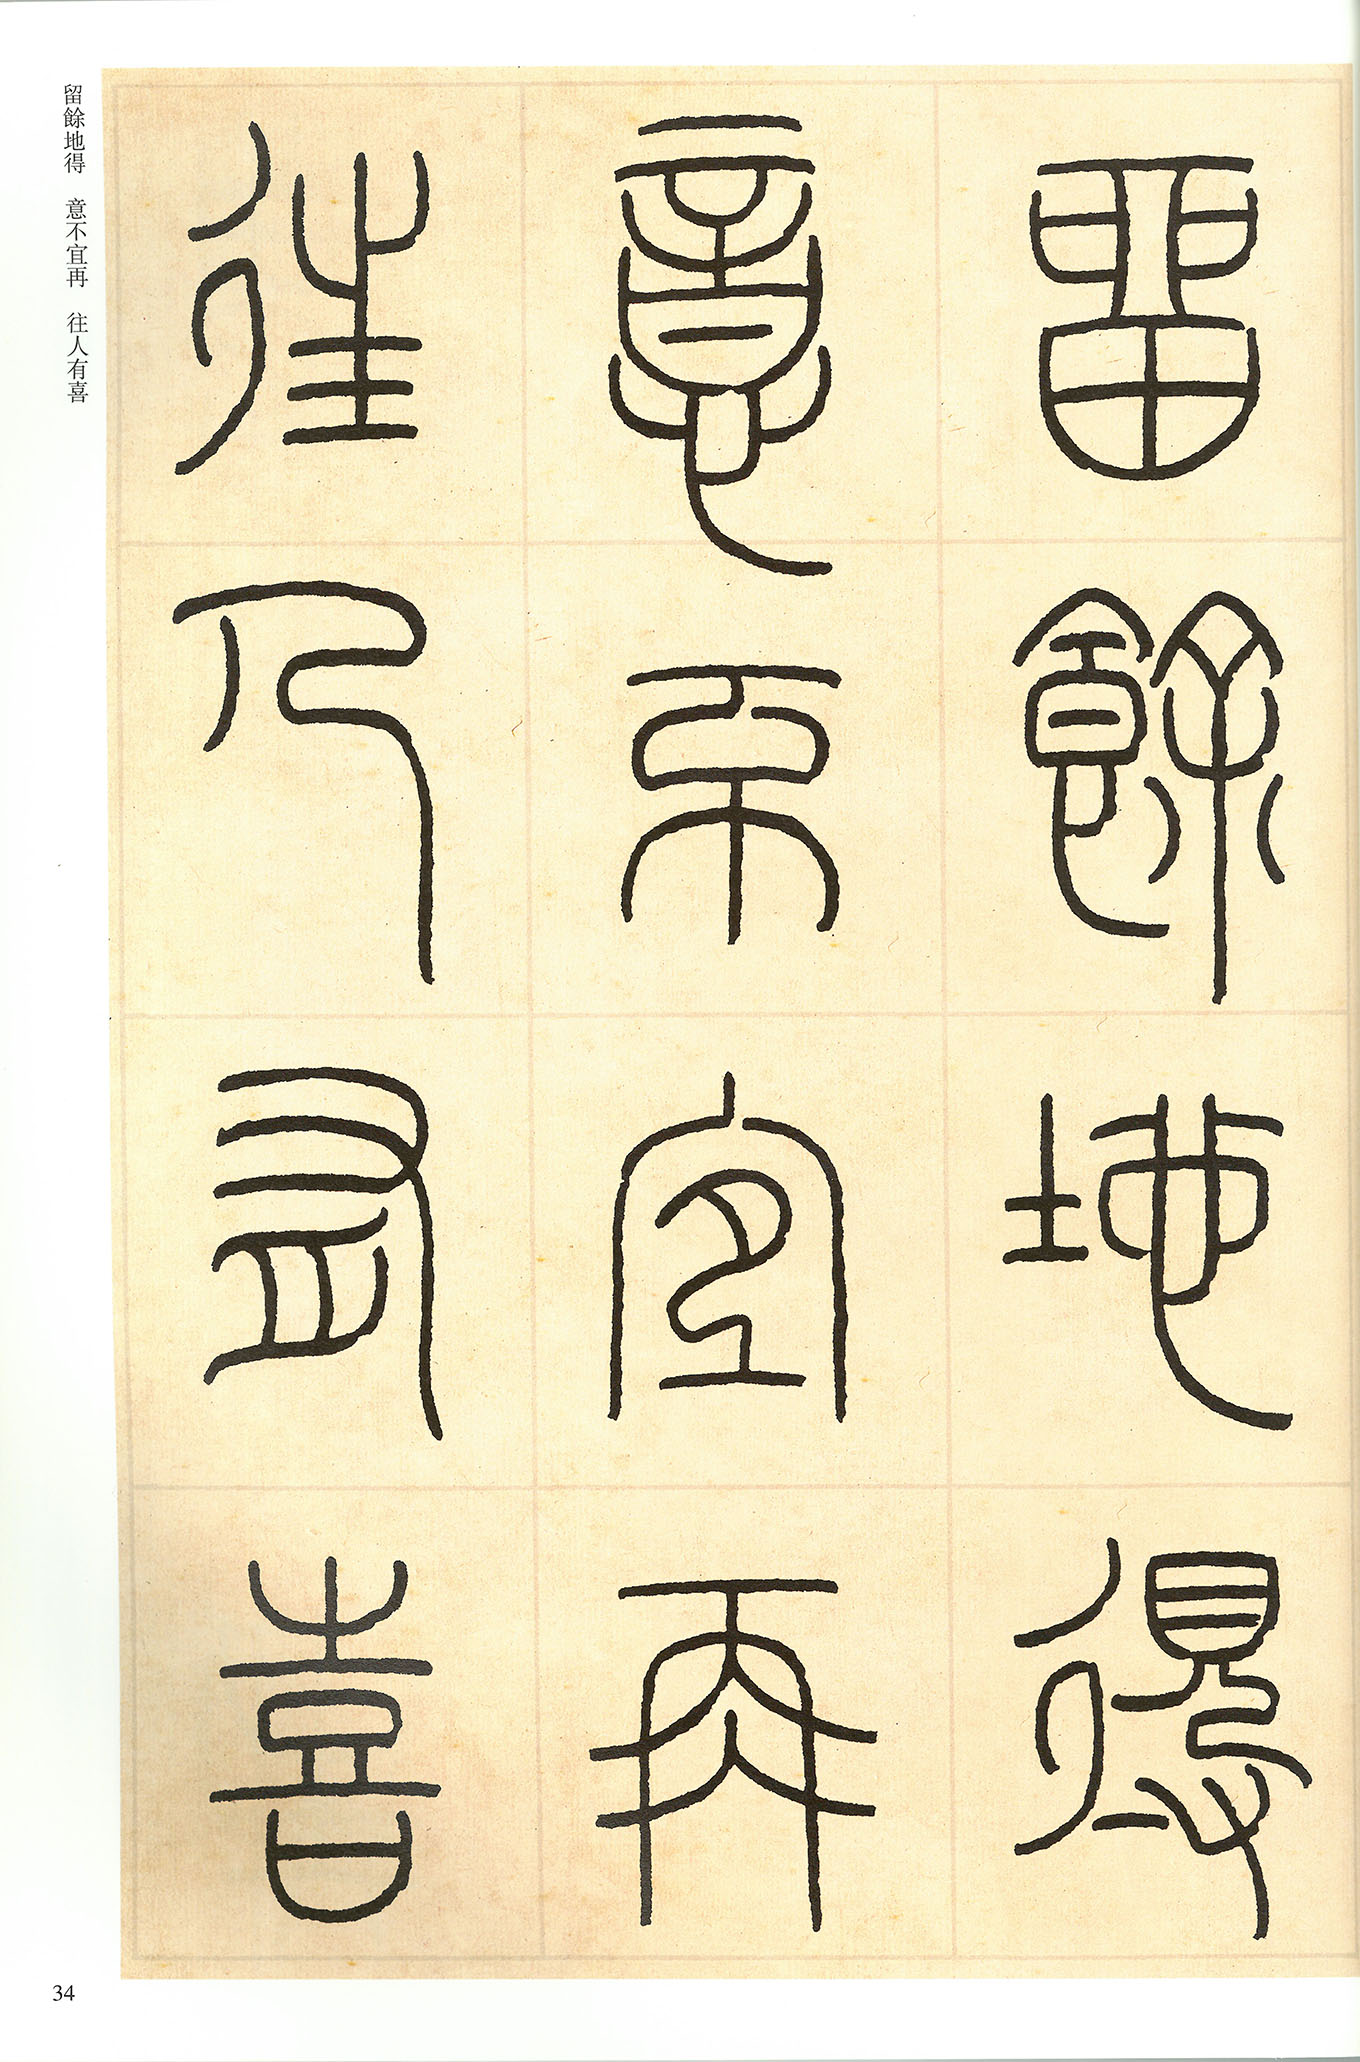 留餘地得
意不宜再
往人有喜
留餘地得　意不宜再　往人有喜
34